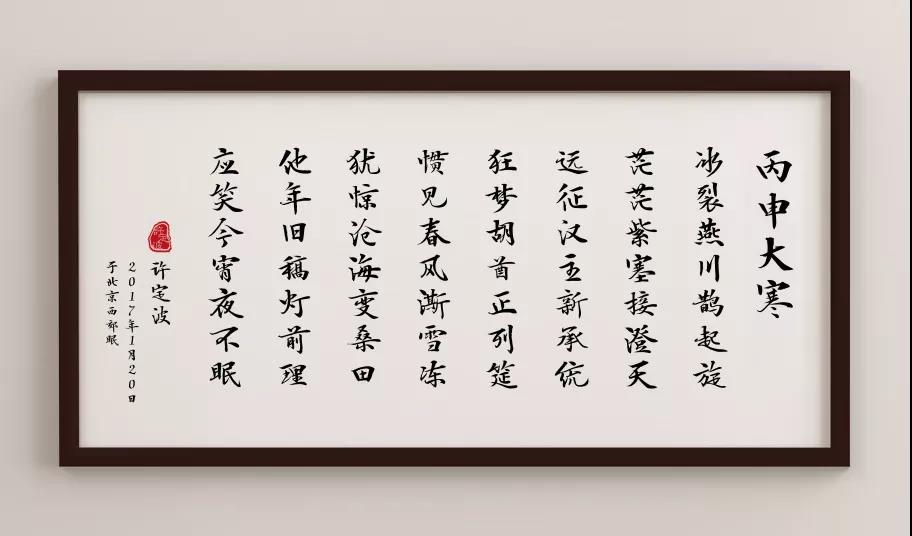 丙申大寒
冰裂燕川鹊起旋
茫茫紫塞接澄天
远征汉主新承统
狂梦胡酋正列筵
惯见春风澌雪冻
犹惊沧海变桑田
他年旧稿灯前理
应笑今宵夜不眠
许定波
2017年1月20日
于北京西郊